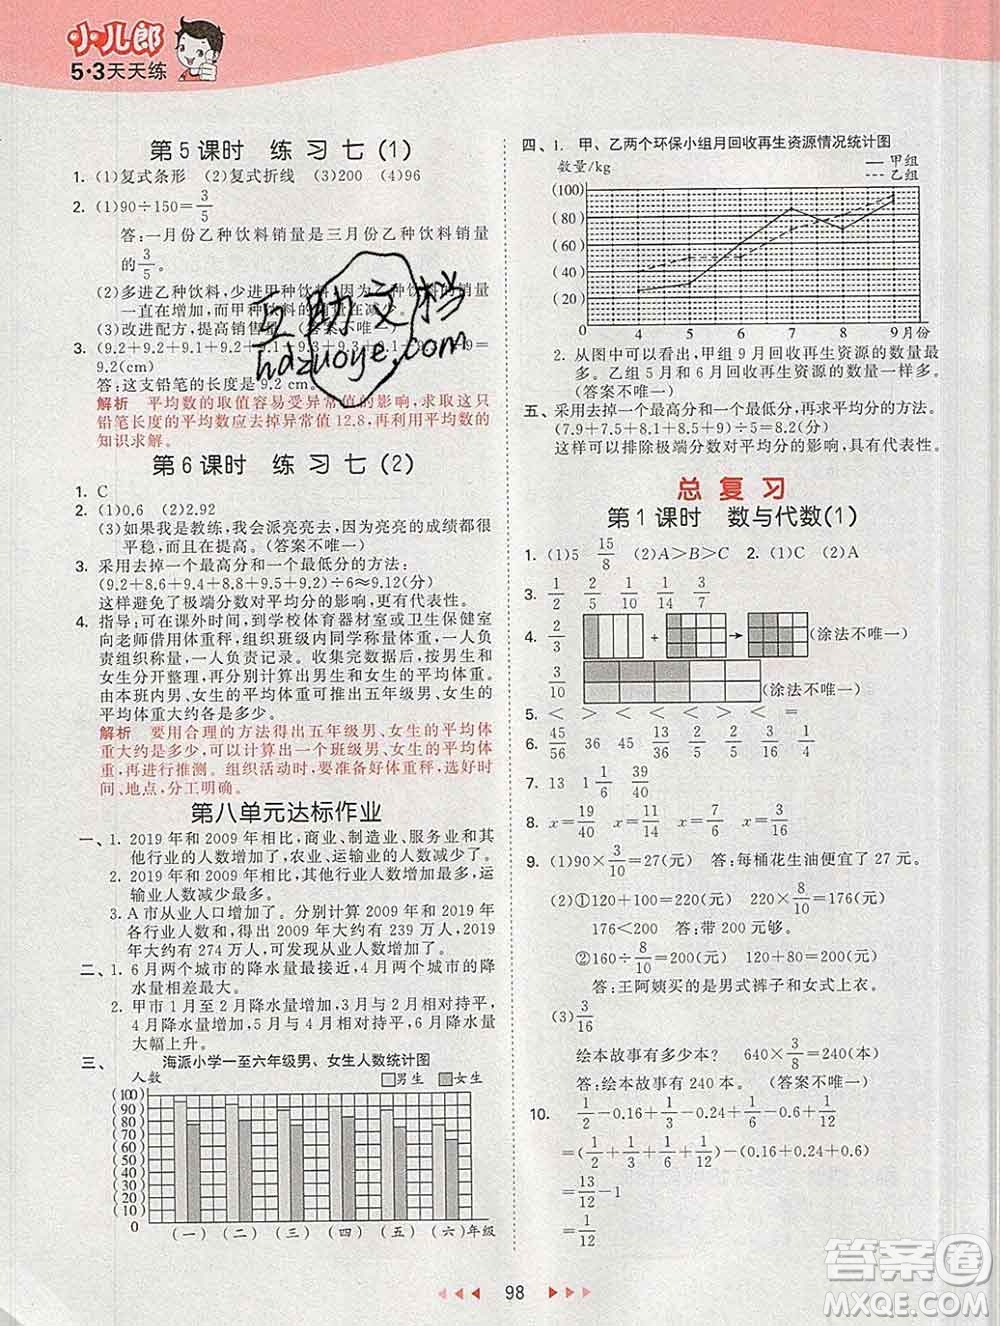 小儿郎
5·3天天练
第5课时 练习七(1)
1. (1)复式条形 (2)复式折线 (3)200 (4)96
2. (1)90÷150=3/5
答:一月份乙种饮料销量是三月份乙种饮料销量
的3/5。
(2)多进乙种饮料,少进甲种饮料,因为乙种饮料销量
一直在增加,而甲种饮料销量在减少。
(3)改进配方,提高销售量。(答案不唯一)
9.2(cm)
答:这支铅笔的长度是9.2 cm。
解析 平均数的取值容易受异常值的影响,求取这只
铅笔长度的平均数应去掉异常值12.8,再利用平均数的
知识求解。
第6课时 练习七(2)
1. C
2. (1)0.6 (2)2.92
(3)如果我是教练,我会派亮亮去,因为亮亮的成绩都很
平稳,而且在提高。(答案不唯一)
3. 采用去掉一个最高分和一个最低分的方法:
(9.2+8.6+9.4+8.9+9.5+9.1)÷6≈9.12(分)
这样避免了极端分数对平均分的影响,更有代表性。
4. 指导:可在课外时间,到学校体育器材室或卫生保健室
向老师借用体重秤,组织班级内同学称量体重,一人负
责组织称量,一人负责记录。收集完数据后,按男生和
女生分开整理,再分别计算出男生和女生的平均体重。
由本班内男、女生的平均体重可推出五年级男、女生的
平均体重大约各是多少。
解析 要用合理的方法得出五年级男、女生的平均体
重大约是多少,可以计算出一个班级男、女生的平均体
重,再进行推测。组织活动时,要准备好体重秤,选好时
间、地点,分工明确。
第八单元达标作业
一、1. 2019年和2009年相比,商业、制造业、服务业和其
他行业的人数增加了,农业、运输业的人数减少了。
2. 2019年和2009年相比,其他行业人数增加最多,运
输业人数减少最多。
3. A市从业人口增加了。分别计算2009年和2019年
各行业人数,2009年大约有239万人,2019
年大约有274万人,可发现从业人数增加了。
二、1. 6月两个城市的降水量最接近,4月两个城市的降
水量相差最大。
2. 甲市1月至2月降水量增加,3月与2月相比持平,
4月降水量增加,5月与4月相比持平,6月降水量
大幅上升。
三、 海派小学一至六年级男、女生人数统计图
人数 男生 女生
(100)
(90)
(80)
(70)
(60)
(50)
(40)
(30)
(20)
(10)
0
(一) (二) (三) (四) (五) (六)年级
四、1. 甲、乙两个环保小组月回收再生资源情况统计图
数量/kg 甲组
乙组
(100)
(80)
(60)
(40)
(20)
0 4 5 6 7 8 9月份
2. 从图中可以看出,甲组9月回收再生资源的数量最
多。乙组5月和6月回收再生资源的数量一样多。
(答案不唯一)
五、采用去掉一个最高分和一个最低分,再求平均分的方法。
(7.9+7.5+8.1+9.0+8.5)÷5=8.2(分)
这样可以排除极端分数对平均分的影响,具有代表性。
总复习
第1课时 数与代数(1)
1. (1)5 15/8 (2)A>B>C 2. (1)C (2)A
3. 1/2 2/5 1/10 1/4 3/7
4. 2/3 + → (涂法不唯一)
3/10 (涂法不唯一)
5. < > < < < =
6. 45/56 36 45 13/36 2/5 7/8
7. 13 1 1/6 39/40
8. x=19/40 x=14/15 x=4/7 x=3/8
9. (1)90×3/10=27(元) 答:每桶花生油便宜了27元。
(2)①120+100=220(元) 220×8/10=176(元)
176<200 答:带200元够。
②160÷8/10=200(元) 120+80=200(元)
答:王阿姨买的是男式裤子和女式上衣。
(3)3/16
绘本故事有多少本? 640×3/8=240(本)
答:绘本故事有240本。(答案不唯一)
10. 1/2-0.16+1/3-0.24+1/6-0.6+1/12
=(1/2+1/3+1/6+1/12)-(0.16+0.24+0.6)
=13/12-1
=1/12
互助文档
hdzuoye.com
98
答案圈
MXQE.COM